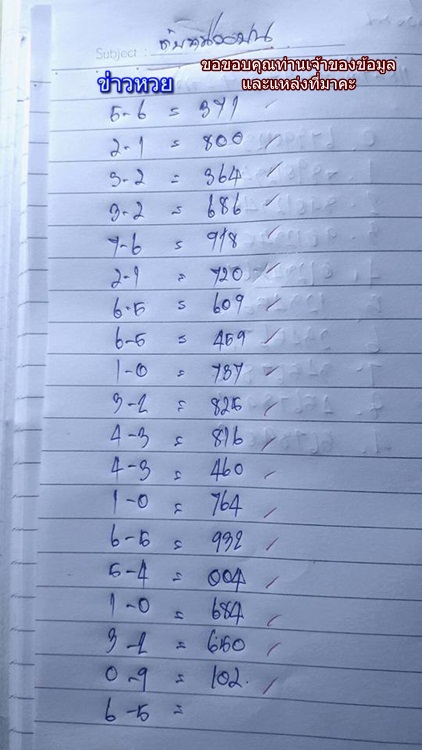 Subject :
ข่าวหวย
ขอขอบคุณท่านเจ้าของข้อมูล
และแหล่งที่มาคะ
5-6 = 371
2-1 = 800
3-2 = 364
3-2 = 686
7-6 = 918
2-1 = 720
6-5 = 609
6-5 = 459
1-0 = 737
3-2 = 825
4-3 = 816
4-3 = 460
1-0 = 764
6-5 = 932
5-4 = 004
1-0 = 684
3-2 = 650
0-9 = 102
6-5 =